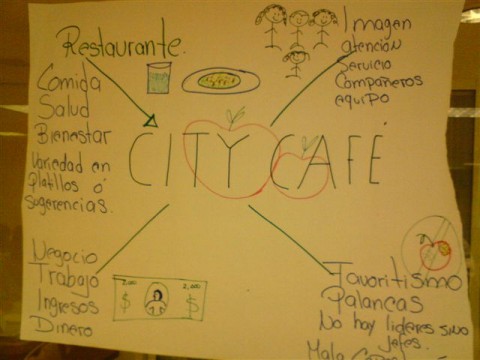 Restaurante.
Comida
Salud
Bienestar
Variedad en
platillos ó
sugerencias.
Imagen
atención
Servicio
Compañeros
equipo
CITY CAFÉ
Negocio
Trabajo
Ingresos
Dinero
$ $
Favoritismo
Palancas
No hay lideres sino
jefes.
Mala